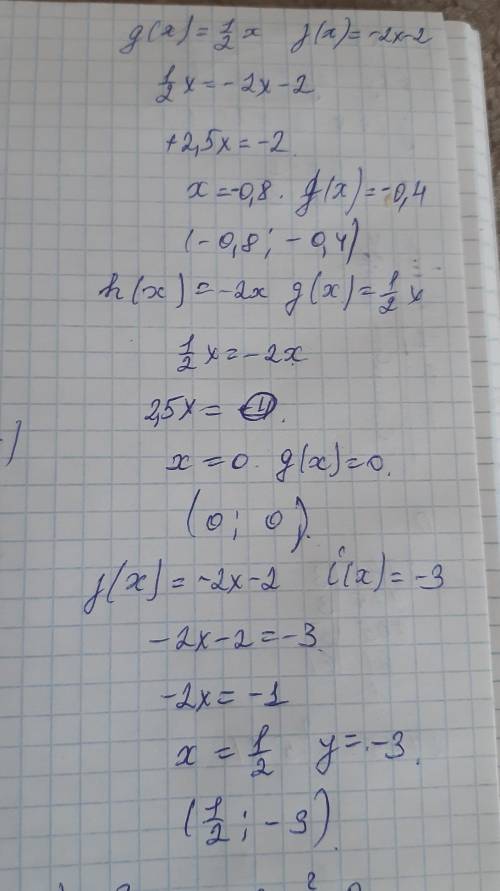 g(x) = 1/2 x  j(x) = -2x-2
1/2 x = -2x-2
+2,5x = -2
x = -0,8. g(x) = -0,4
(-0,8; -0,4).
h(x) = -2x g(x) = 1/2 x
1/2 x = -2x
2,5x =
x = 0. g(x) = 0.
(0; 0).
j(x) = -2x-2  i(x) = -3
-2x-2 = -3.
-2x = -1
x = 1/2  y = -3.
(1/2; -3).